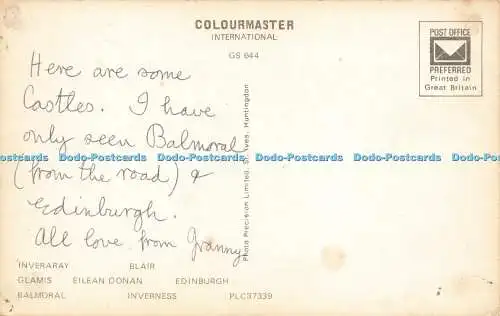 COLOURMASTER
INTERNATIONAL
GS 644
POST OFFICE
PREFERRED
Printed in
Great Britain
Here are some
Castles. I have
only seen Balmoral
Dodo-Postcards Dodo-Postcards Dodo-Postcards Dodo-Postcards Dodo-Postcards
(from the road) &
Edinburgh.
All love from Granny
Photo Precision Limited, St. Ives, Huntingdon
INVERARAY BLAIR
GLAMIS EILEAN DONAN EDINBURGH
BALMORAL INVERNESS PLC37339